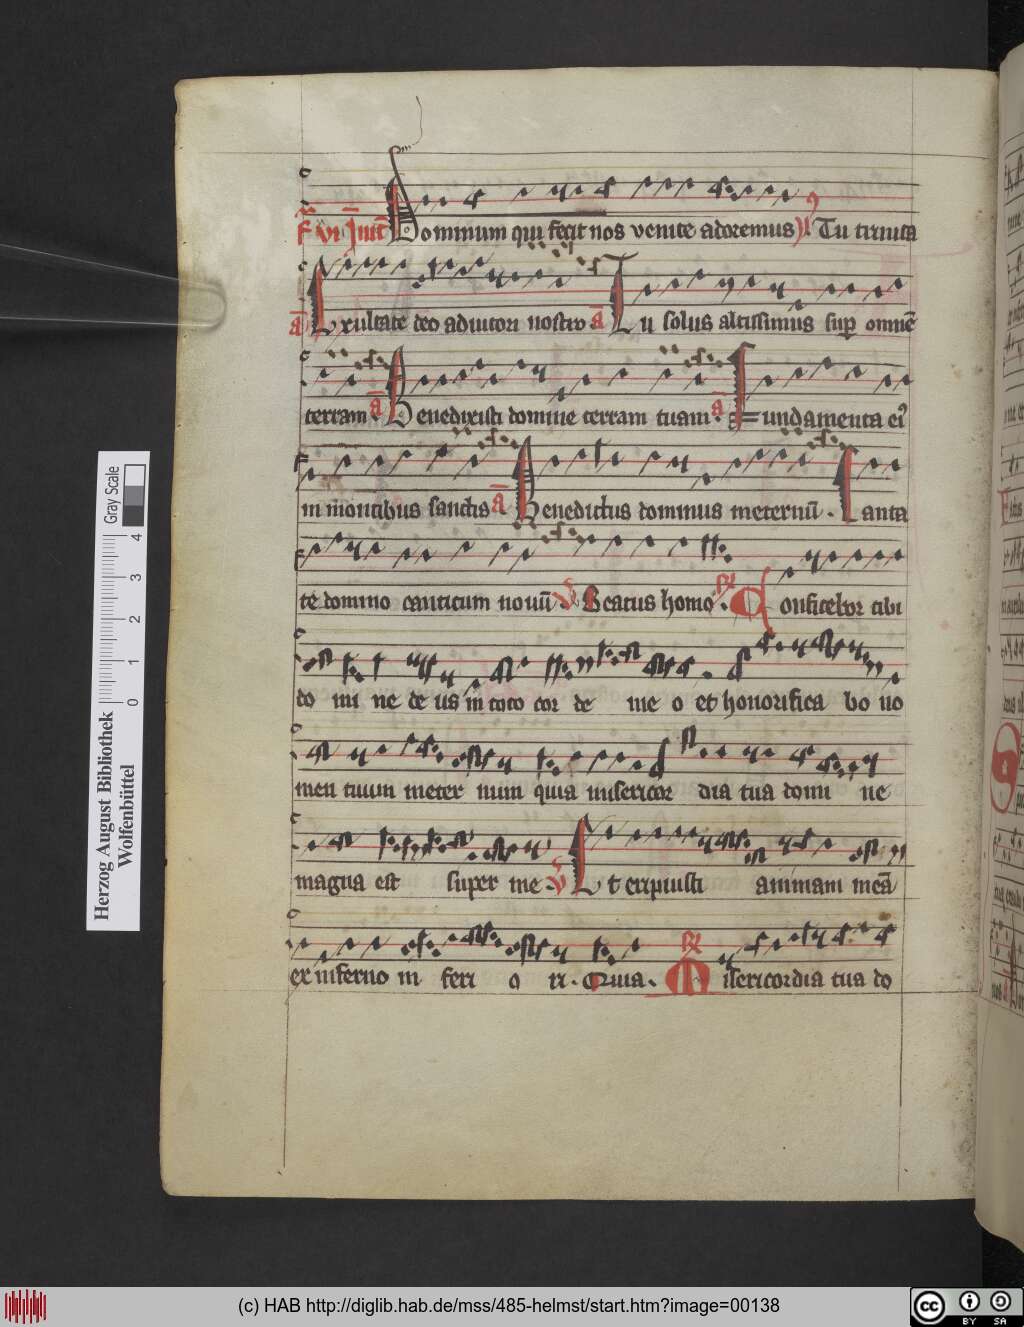 F vi Inūt Dominum qui fecit nos venite adoremus Tu trinita
a̅ Exultate deo adiutori nostro a̅ Tu solus altissimus sup̱ omnē
terram. a̅ Benedixisti domine terram tuam. a̅ Fundamenta ei9
in montibus sanctis a̅ Benedictus dominus ineternū. Canta
te domino canticum nouū V Beatus homo. R Confitebor tibi
do mi ne de us in toto cor de me o et honorifica bo no
men tuum ineter num quia misericor dia tua domi ne
magna est super me V Et eripuisti animam meā
ex inferno in feri o ri. Quia. R Misericordia tua do
Herzog August Bibliothek
Wolfenbüttel
0 1 2 3 4
Gray Scale
(c) HAB http://diglib.hab.de/mss/485-helmst/start.htm?image=00138
cc BY SA